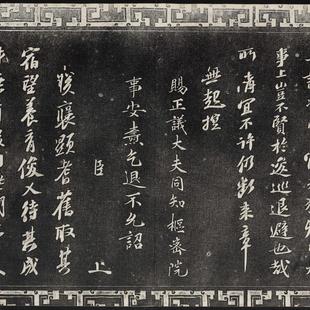 事上豈不賢於逡巡退避也哉
所請宜不許仍斷來章
無起
賜正議大夫同知樞密院
事安燾乞退不允詔
臣 上
朕褒顯耆舊取其
宿望養育俊乂待其成